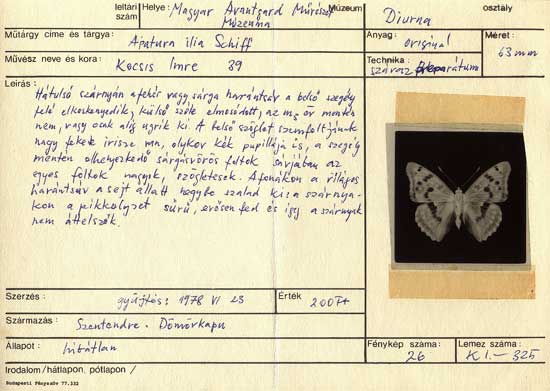 leltári szám Helye: Magyar Avantgard Művészet Múzeuma Múzeum Diurna osztály
Műtárgy címe és tárgya: Apatura ilia Schiff Anyag: original Méret: 63 mm
Művész neve és kora: Kocsis Imre 39 Technika: száraz preparátum
Leírás: Hátulsó szárnyán a fehér vagy sárga harántsáv a belső szegély
felé elkeskenyedik, külső széle elmosódott, az m3 ér mentén
nem, vagy csak alig ugrik ki. A belső szöglet szemfoltjának
nagy fekete írisze van, olykor kék pupillája is, a szegély
mentén elhelyezkedő sárgásvörös foltok sávjában az
egyes foltok nagyok, szögletesek. A fonákon a világos
harántsáv a sejt alatt hegybe szalad ki: a szárnya-
kon a pikkelyzet sűrű, erősen fed és így a szárnyak
nem áttetszők.
Szerzés: gyűjtés: 1978 VI 23 Érték 200 Ft
Származás: Szentendre - Dömörkapu
Állapot: hibátlan Fénykép száma: 26 Lemez száma: K 1. - 325
Irodalom /hátlapon, pótlapon /
Budapesti Fényszöv 77.332